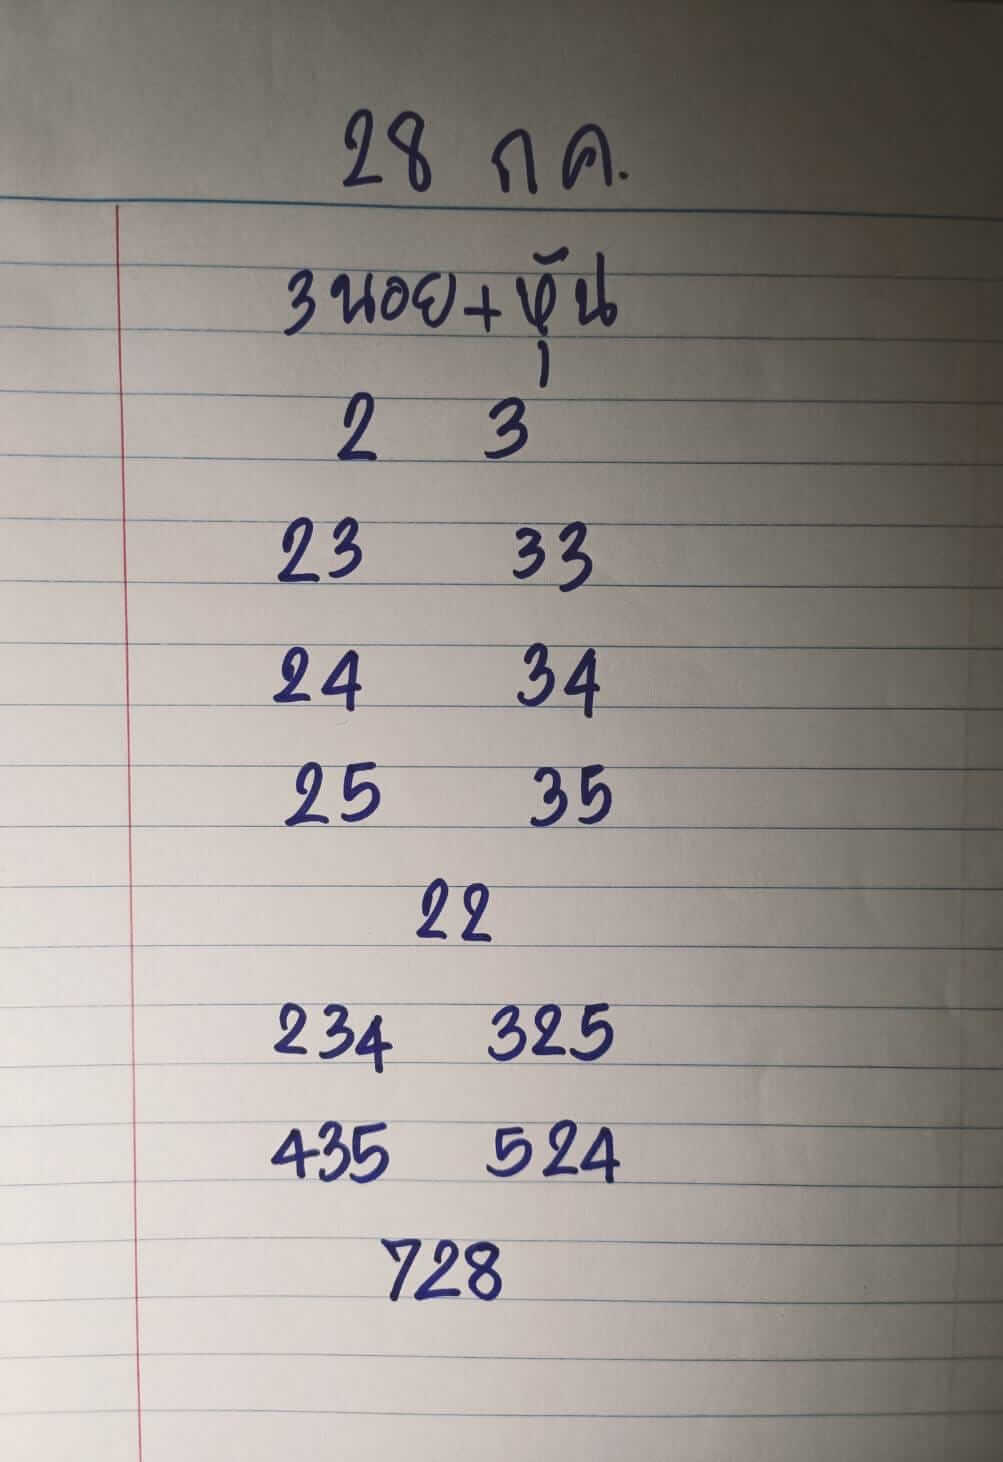 28 กค.
3นอย+หุ้น
2 3
23 33
24 34
25 35
22
234 325
435 524
728